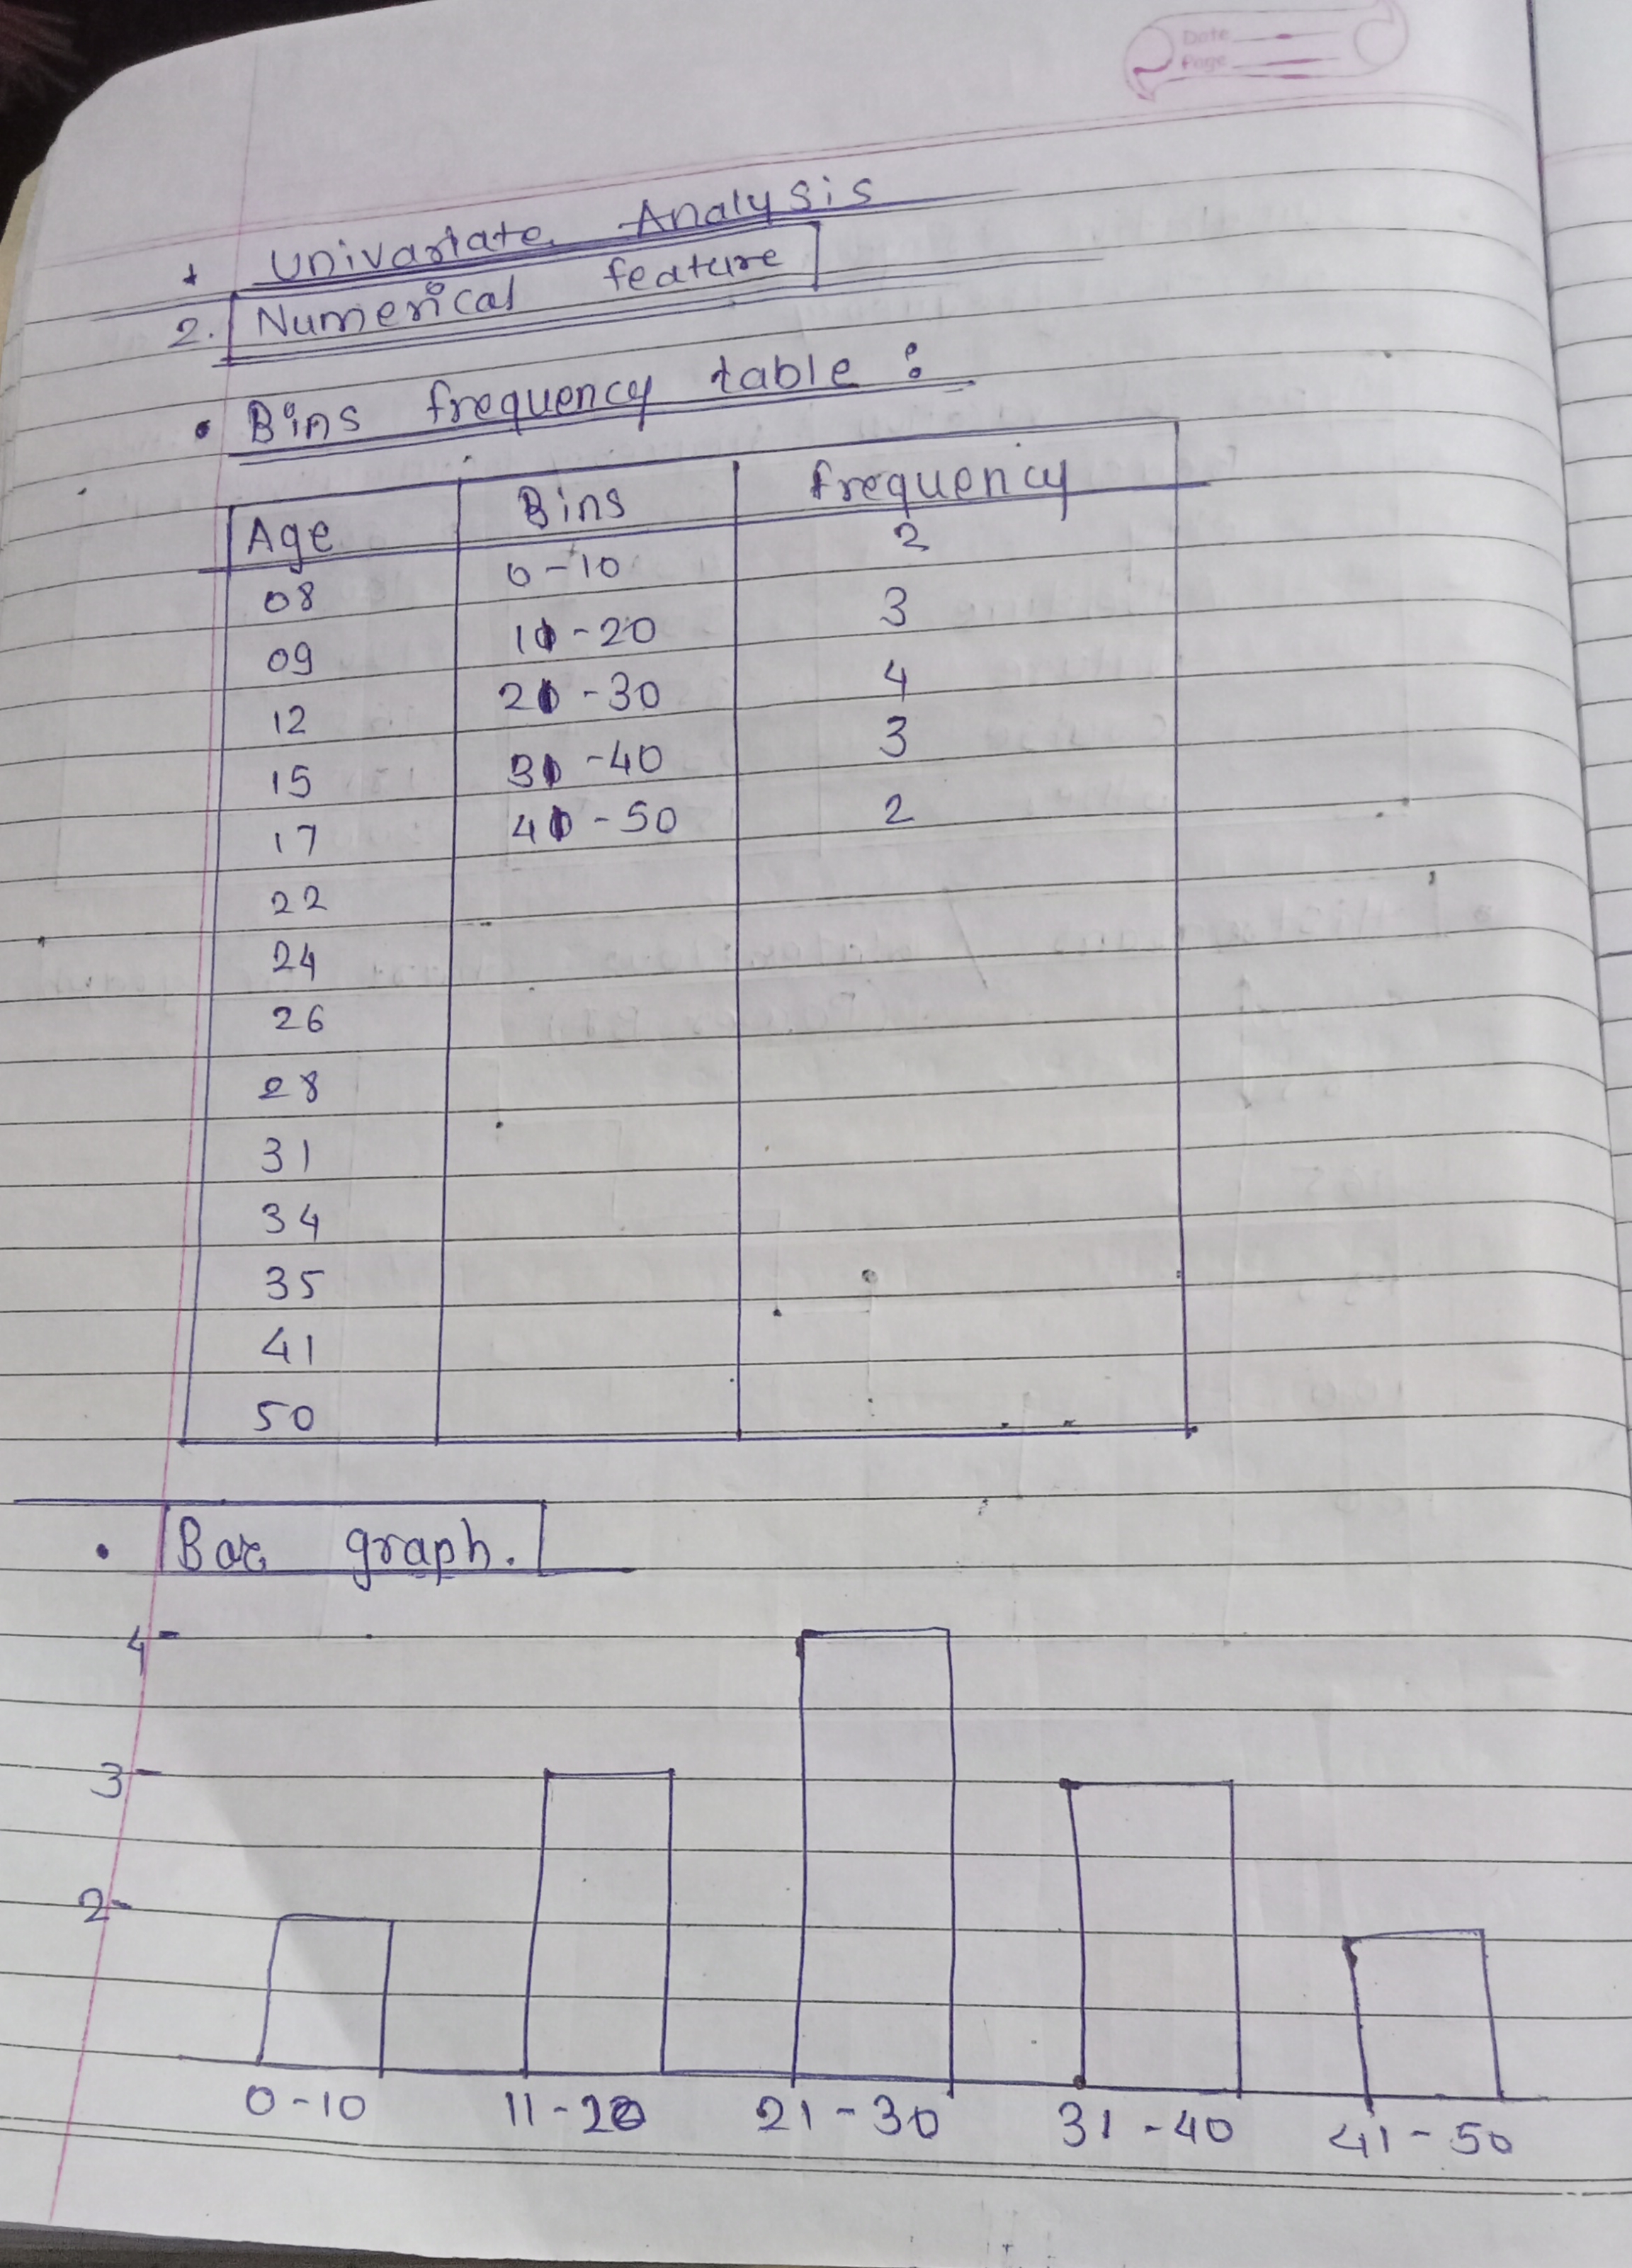 Date
Page
Univariate Analysis
2. Numerical feature
• Bins frequency table :
Age Bins frequency
08 0-10 2
09 11-20 3
12 21-30 4
15 31-40 3
17 41-50 2
22
24
26
28
31
34
35
41
50
• Bar graph.
4
3
2
0-10 11-20 21-30 31-40 41-50